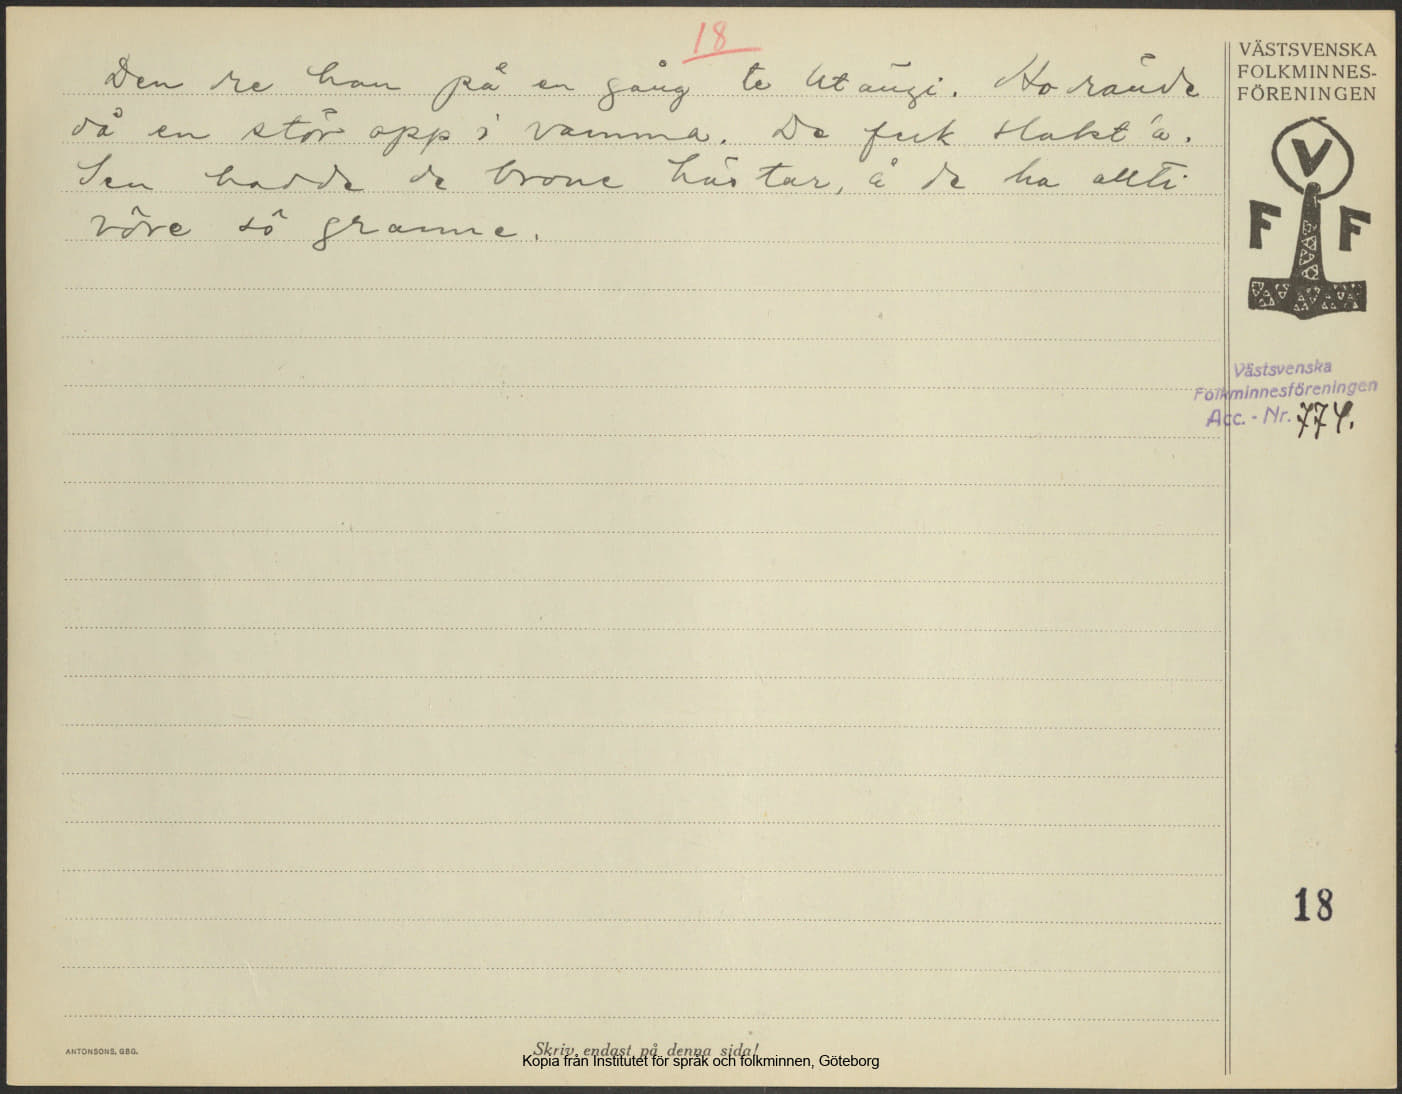 18
Den re han på en gång te Utängi. Ho rände
då en stör opp i vamma. De fuk slakt'a.
Sen hadde de brone hästar, å de ha allti
vôre sô granne.
VÄSTSVENSKA
FOLKMINNES-
FÖRENINGEN
V
F F
Västsvenska
Folkminnesföreningen
Acc. - Nr. 774.
18
ANTONSONS, GBG.
Skriv endast på denna sida!
Kopia från Institutet för språk och folkminnen, Göteborg